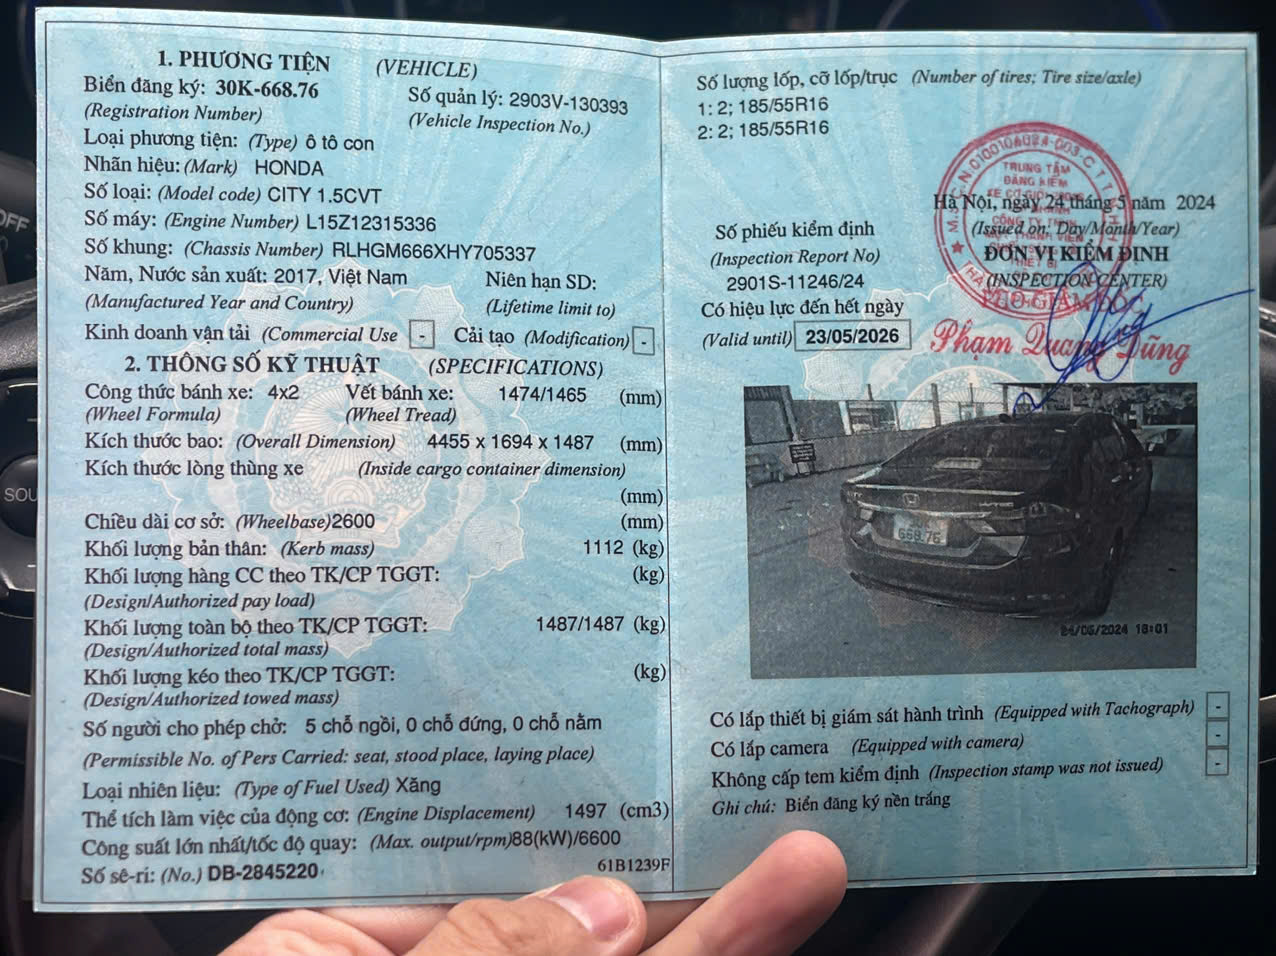 1. PHƯƠNG TIỆN (VEHICLE)
Biển đăng ký: 30K-668.76 Số quản lý: 2903V-130393
(Registration Number) (Vehicle Inspection No.)
Loại phương tiện: (Type) ô tô con
Nhãn hiệu: (Mark) HONDA
Số loại: (Model code) CITY 1.5CVT
Số máy: (Engine Number) L15Z12315336
Số khung: (Chassis Number) RLHGM666XHY705337
Năm, Nước sản xuất: 2017, Việt Nam Niên hạn SD:
(Manufactured Year and Country) (Lifetime limit to)
Kinh doanh vận tải (Commercial Use - Cải tạo (Modification) -
2. THÔNG SỐ KỸ THUẬT (SPECIFICATIONS)
Công thức bánh xe: 4x2 Vết bánh xe: 1474/1465 (mm)
(Wheel Formula) (Wheel Tread)
Kích thước bao: (Overall Dimension) 4455 x 1694 x 1487 (mm)
Kích thước lòng thùng xe (Inside cargo container dimension)
(mm)
Chiều dài cơ sở: (Wheelbase)2600 (mm)
Khối lượng bản thân: (Kerb mass) 1112 (kg)
Khối lượng hàng CC theo TK/CP TGGT: (kg)
(Design/Authorized pay load)
Khối lượng toàn bộ theo TK/CP TGGT: 1487/1487 (kg)
(Design/Authorized total mass)
Khối lượng kéo theo TK/CP TGGT: (kg)
(Design/Authorized towed mass)
Số người cho phép chở: 5 chỗ ngồi, 0 chỗ đứng, 0 chỗ nằm
(Permissible No. of Pers Carried: seat, stood place, laying place)
Loại nhiên liệu: (Type of Fuel Used) Xăng
Thể tích làm việc của động cơ: (Engine Displacement) 1497 (cm3)
Công suất lớn nhất/tốc độ quay: (Max. output/rpm)88(kW)/6600
Số sê-ri: (No.) DB-2845220 61B1239F
Số lượng lốp, cỡ lốp/trục (Number of tires; Tire size/axle)
1: 2; 185/55R16
2: 2; 185/55R16
TRUNG TÂM
ĐĂNG KIỂM
Hà Nội, ngày 24 tháng 5 năm 2024
(Issued on: Day/Month/Year)
ĐƠN VỊ KIỂM ĐỊNH
(INSPECTION CENTER)
PHÓ GIÁM ĐỐC
Phạm Quang Dũng
Số phiếu kiểm định
(Inspection Report No)
2901S-11246/24
Có hiệu lực đến hết ngày
(Valid until) 23/05/2026
668.76
24/05/2024 18:01
Có lắp thiết bị giám sát hành trình (Equipped with Tachograph) -
Có lắp camera (Equipped with camera) -
Không cấp tem kiểm định (Inspection stamp was not issued) -
Ghi chú: Biển đăng ký nền trắng
OFF
SOU